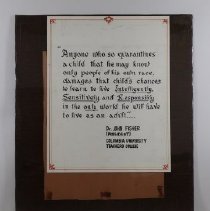 "Anyone who so quarantines
a child that he may know
only people of his own race,
damages that child's chances
to learn to live Intelligently,
Sensitively and Responsibly
in the only world he will have
to live as an adult..."
Dr. JOHN FISHER
(PRESIDENT)
COLUMBIA UNIVERSITY
TEACHERS COLLEGE